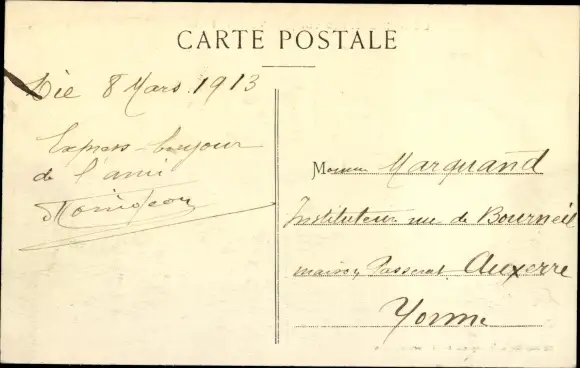 CARTE POSTALE
Die 8 Mars 1913
Express-bonjour
de l'ami
M Marquand
Instituteur rue de Bourneil
maison Passerat Auxerre
Yonne